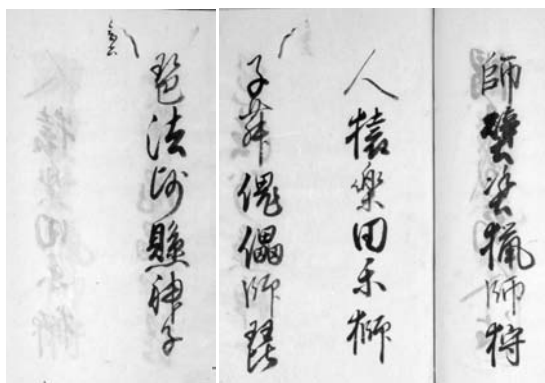 師壁塗猟師狩
人猿楽田楽獅
子舞傀儡師琵
琶法師縣神子